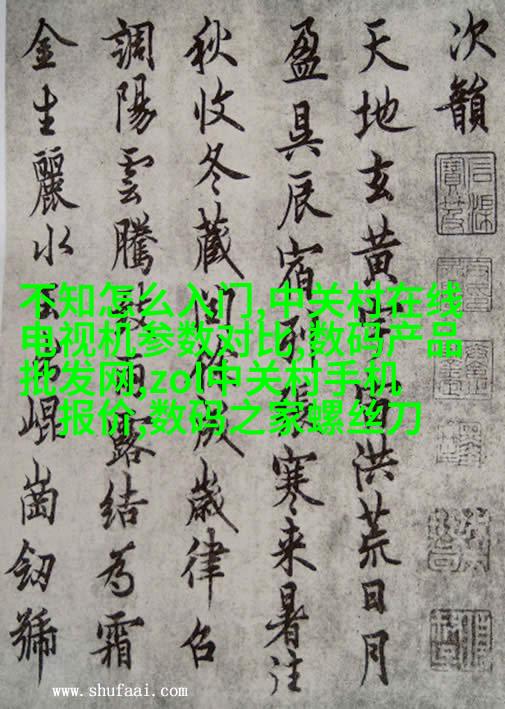 次韻
天地玄黄宇宙洪荒日月
盈昃辰宿列張寒来暑往
秋收冬蔵閏餘成歳律吕
調陽雲騰致雨露結為霜
金生麗水玉出崐崗劒號
不知怎么入门,中关村在线
电视机参数对比,数码产品
批发网,zol中关村手机
报价,数码之家螺丝刀
www.shufaai.com